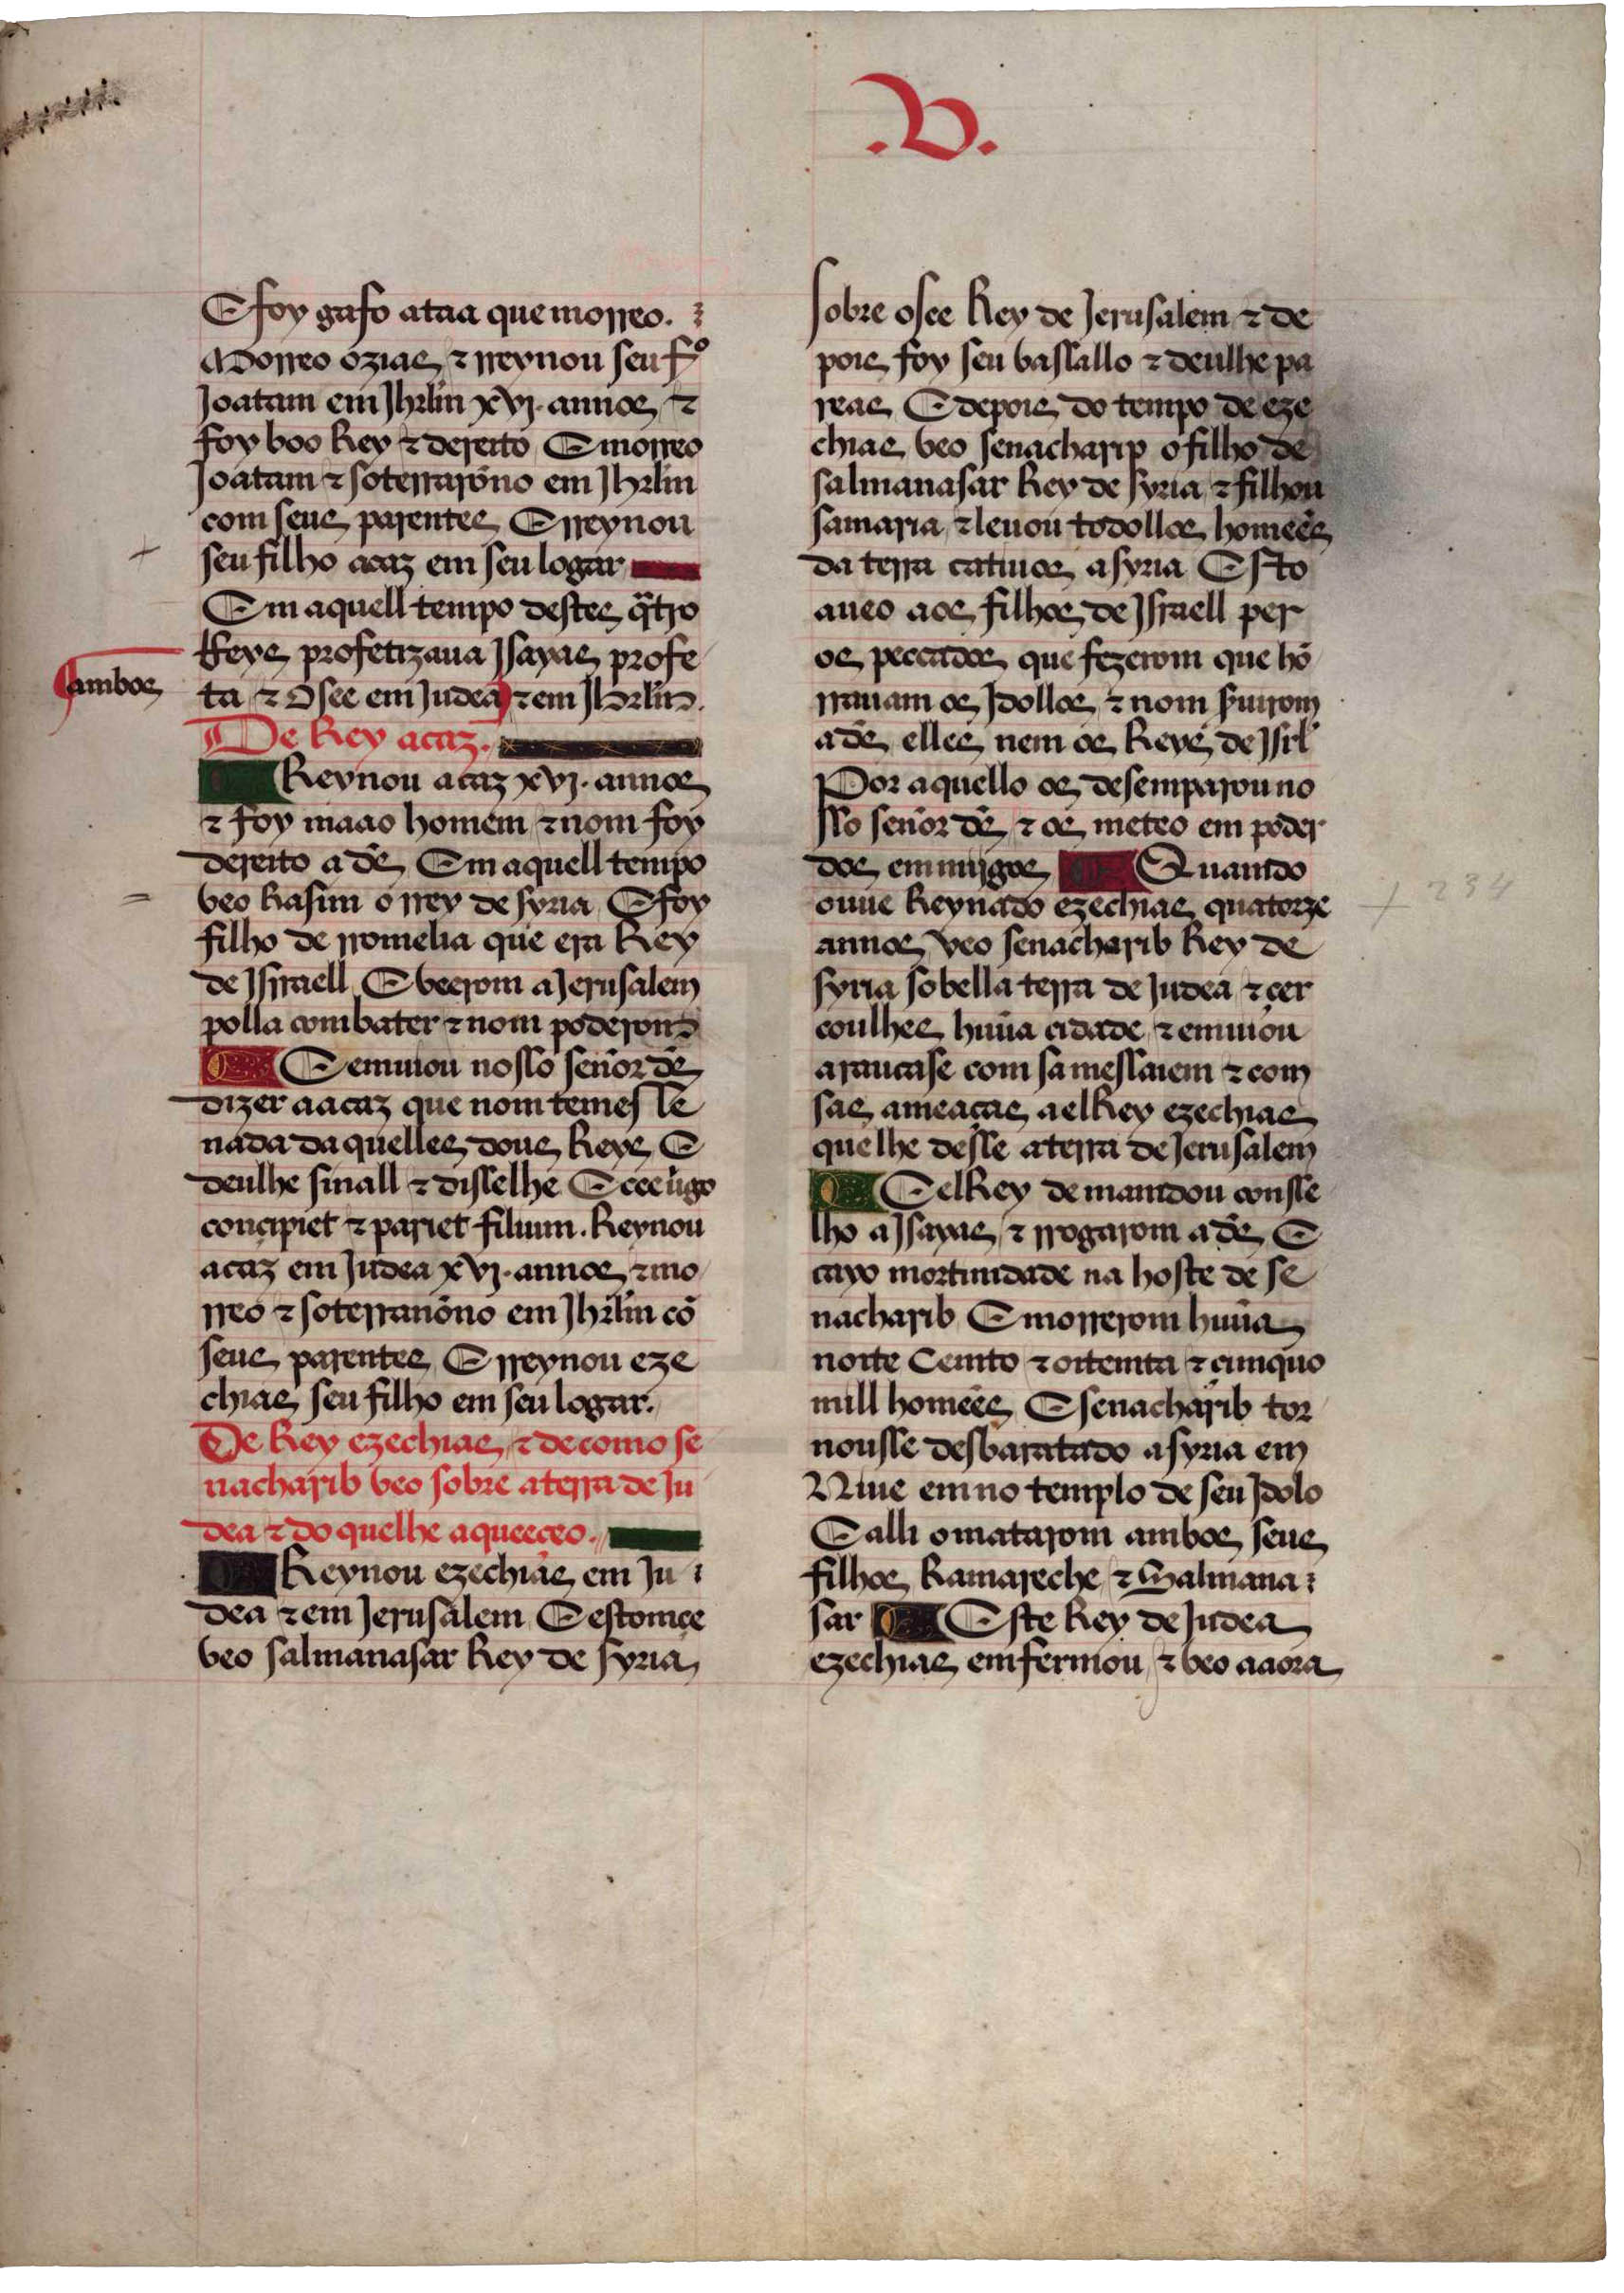 .B.
E foy gafo ataa que morreo.
Morreo ozias ⁊ rreynou seu fº
Joatam em Jhrlm xvj. annos ⁊
foy boo Rey ⁊ dereito E morreo
Joatam ⁊ soterrarõno em Jhrlm
com seus parentes E rreynou
seu filho acaz em seu logar
Em aquell tempo destes q̃tro
Reys profetizaua Jsayas profe
ambos
ta ⁊ Osee em Judea ⁊ em Jhrlm.
De Rey acaz.
Reynou acaz xvj. annos
⁊ foy maao homem ⁊ nom foy
dereito a dẽ Em aquell tempo
veo Rasim o rrey de syria E foy
filho de rromelia que era Rey
de Jsrraell E veerom a Jerusalem
polla combater ⁊ nom poderom
E emuiou nosso señor dẽ
dizer a acaz que nom temesse
nada daquelles dous Reys E
deulhe sinall ⁊ disselhe Ecce ũgo
concipiet ⁊ pariet filium. Reynou
acaz em Judea xvj. annos ⁊ mo
rreo ⁊ soterranõno em Jhrlm cõ
seus parentes E rreynou eze
chias seu filho em seu logar.
De Rey ezechias ⁊ de como se
nacharib veo sobre a terra de Ju
dea ⁊ do que lhe aqueeceo.
Reynou ezechias em Ju
dea ⁊ em Jerusalem E estomçe
veo salmanasar Rey de syria
sobre osee Rey de Jerusalem ⁊ de
pois foy seu vassallo ⁊ deulhe pa
reas E depois do tempo de eze
chias veo senacharip o filho de
salmanasar Rey de syria ⁊ filhou
samaria ⁊ leuou todollos homeẽs
da terra catiuos a syria Esto
aueo aos filhos de Jsraell per
os peccados que fezerom que hõ
rrauam os Jdollos ⁊ nom s̃uirom
a dẽ elles nem os Reys de Jsrl
Por aquello os desemparou no
sso señor dẽ ⁊ os meteo em poder
dos emmijgos Quamdo
ouue Reynado ezechias quatorze
+ 234
annos veo senacharib Rey de
syria sobella terra de Judea ⁊ çer
coulhes huũa cidade ⁊ emuiou
a raucase com sa messaiem ⁊ com
sas ameaças a el Rey ezechias
que lhe desse a terra de Jerusalem
E el Rey demamdou consse
lho a Jsayas ⁊ rrogarom a dẽ E
cayo mortimdade na hoste de se
nacharib E morrerom huũa
noite Cemto ⁊ oitemta ⁊ çimquo
mill homeẽs E senacharib tor
nousse desbaratado a syria em
Niue em no templo de seu Jdolo
E alli o matarom ambos seus
filhos Ramareche ⁊ Salmana
sar Este Rey de Judea
ezechias emfermou ⁊ veo aaora